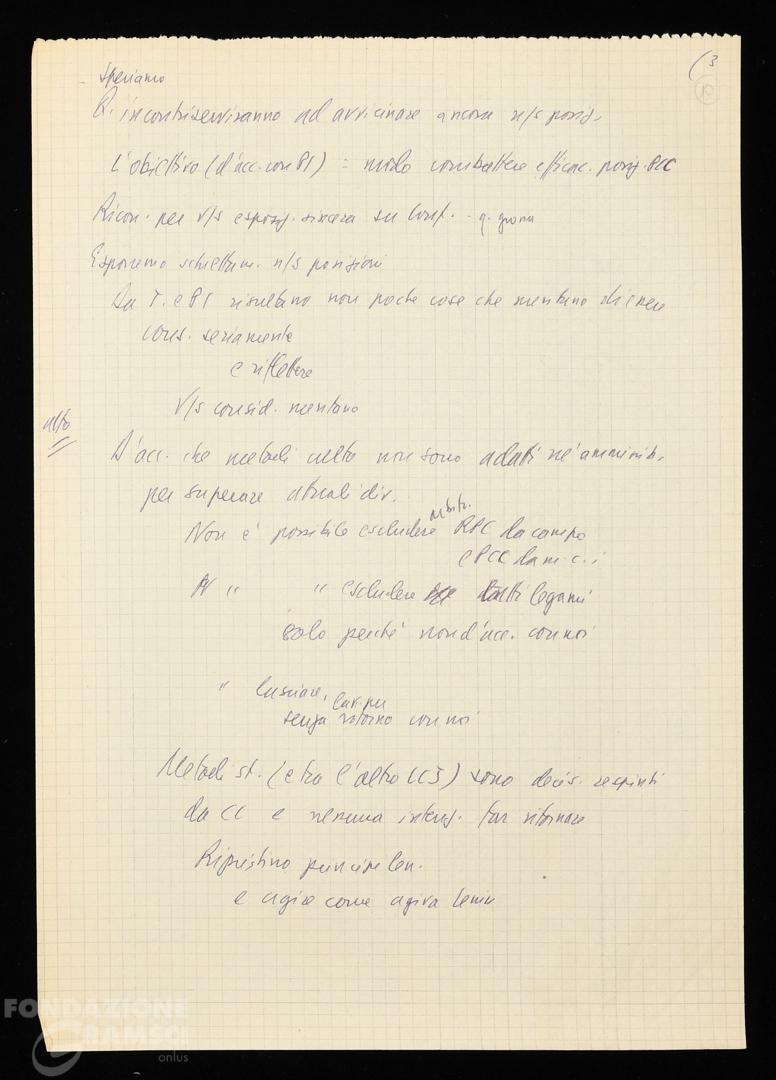 (3
10
- Speriamo
Q. incontri serviranno ad avvicinare ancora n/s posiz.
L'obiettivo (d'acc. con PI) = modo combattere efficac. posiz. PCC
Ricon. per v/s esposiz. sincera su
Esporremo schiettam. n/s posizioni
Da T. e PI risultano non poche cose che meritano di essere
cons. seriamente
e riflettere
V/s consid. meritano
D'acc. che metodi non sono adatti né amminist.
per superare attuali div.
Non è possibile escludere RPC da campo
e PCC da m.c.i
N " " escludere tutti legami
solo perché non d'acc. con noi
" lasciare,
senza ritorno con noi
Metodi st. (e tra l'altro ) sono decis. respinti
da CC e nessuna intenz. far ritornare
Ripristino len.
e agire come agiva Lenin
FONDAZIONE
GRAMSCI
onlus